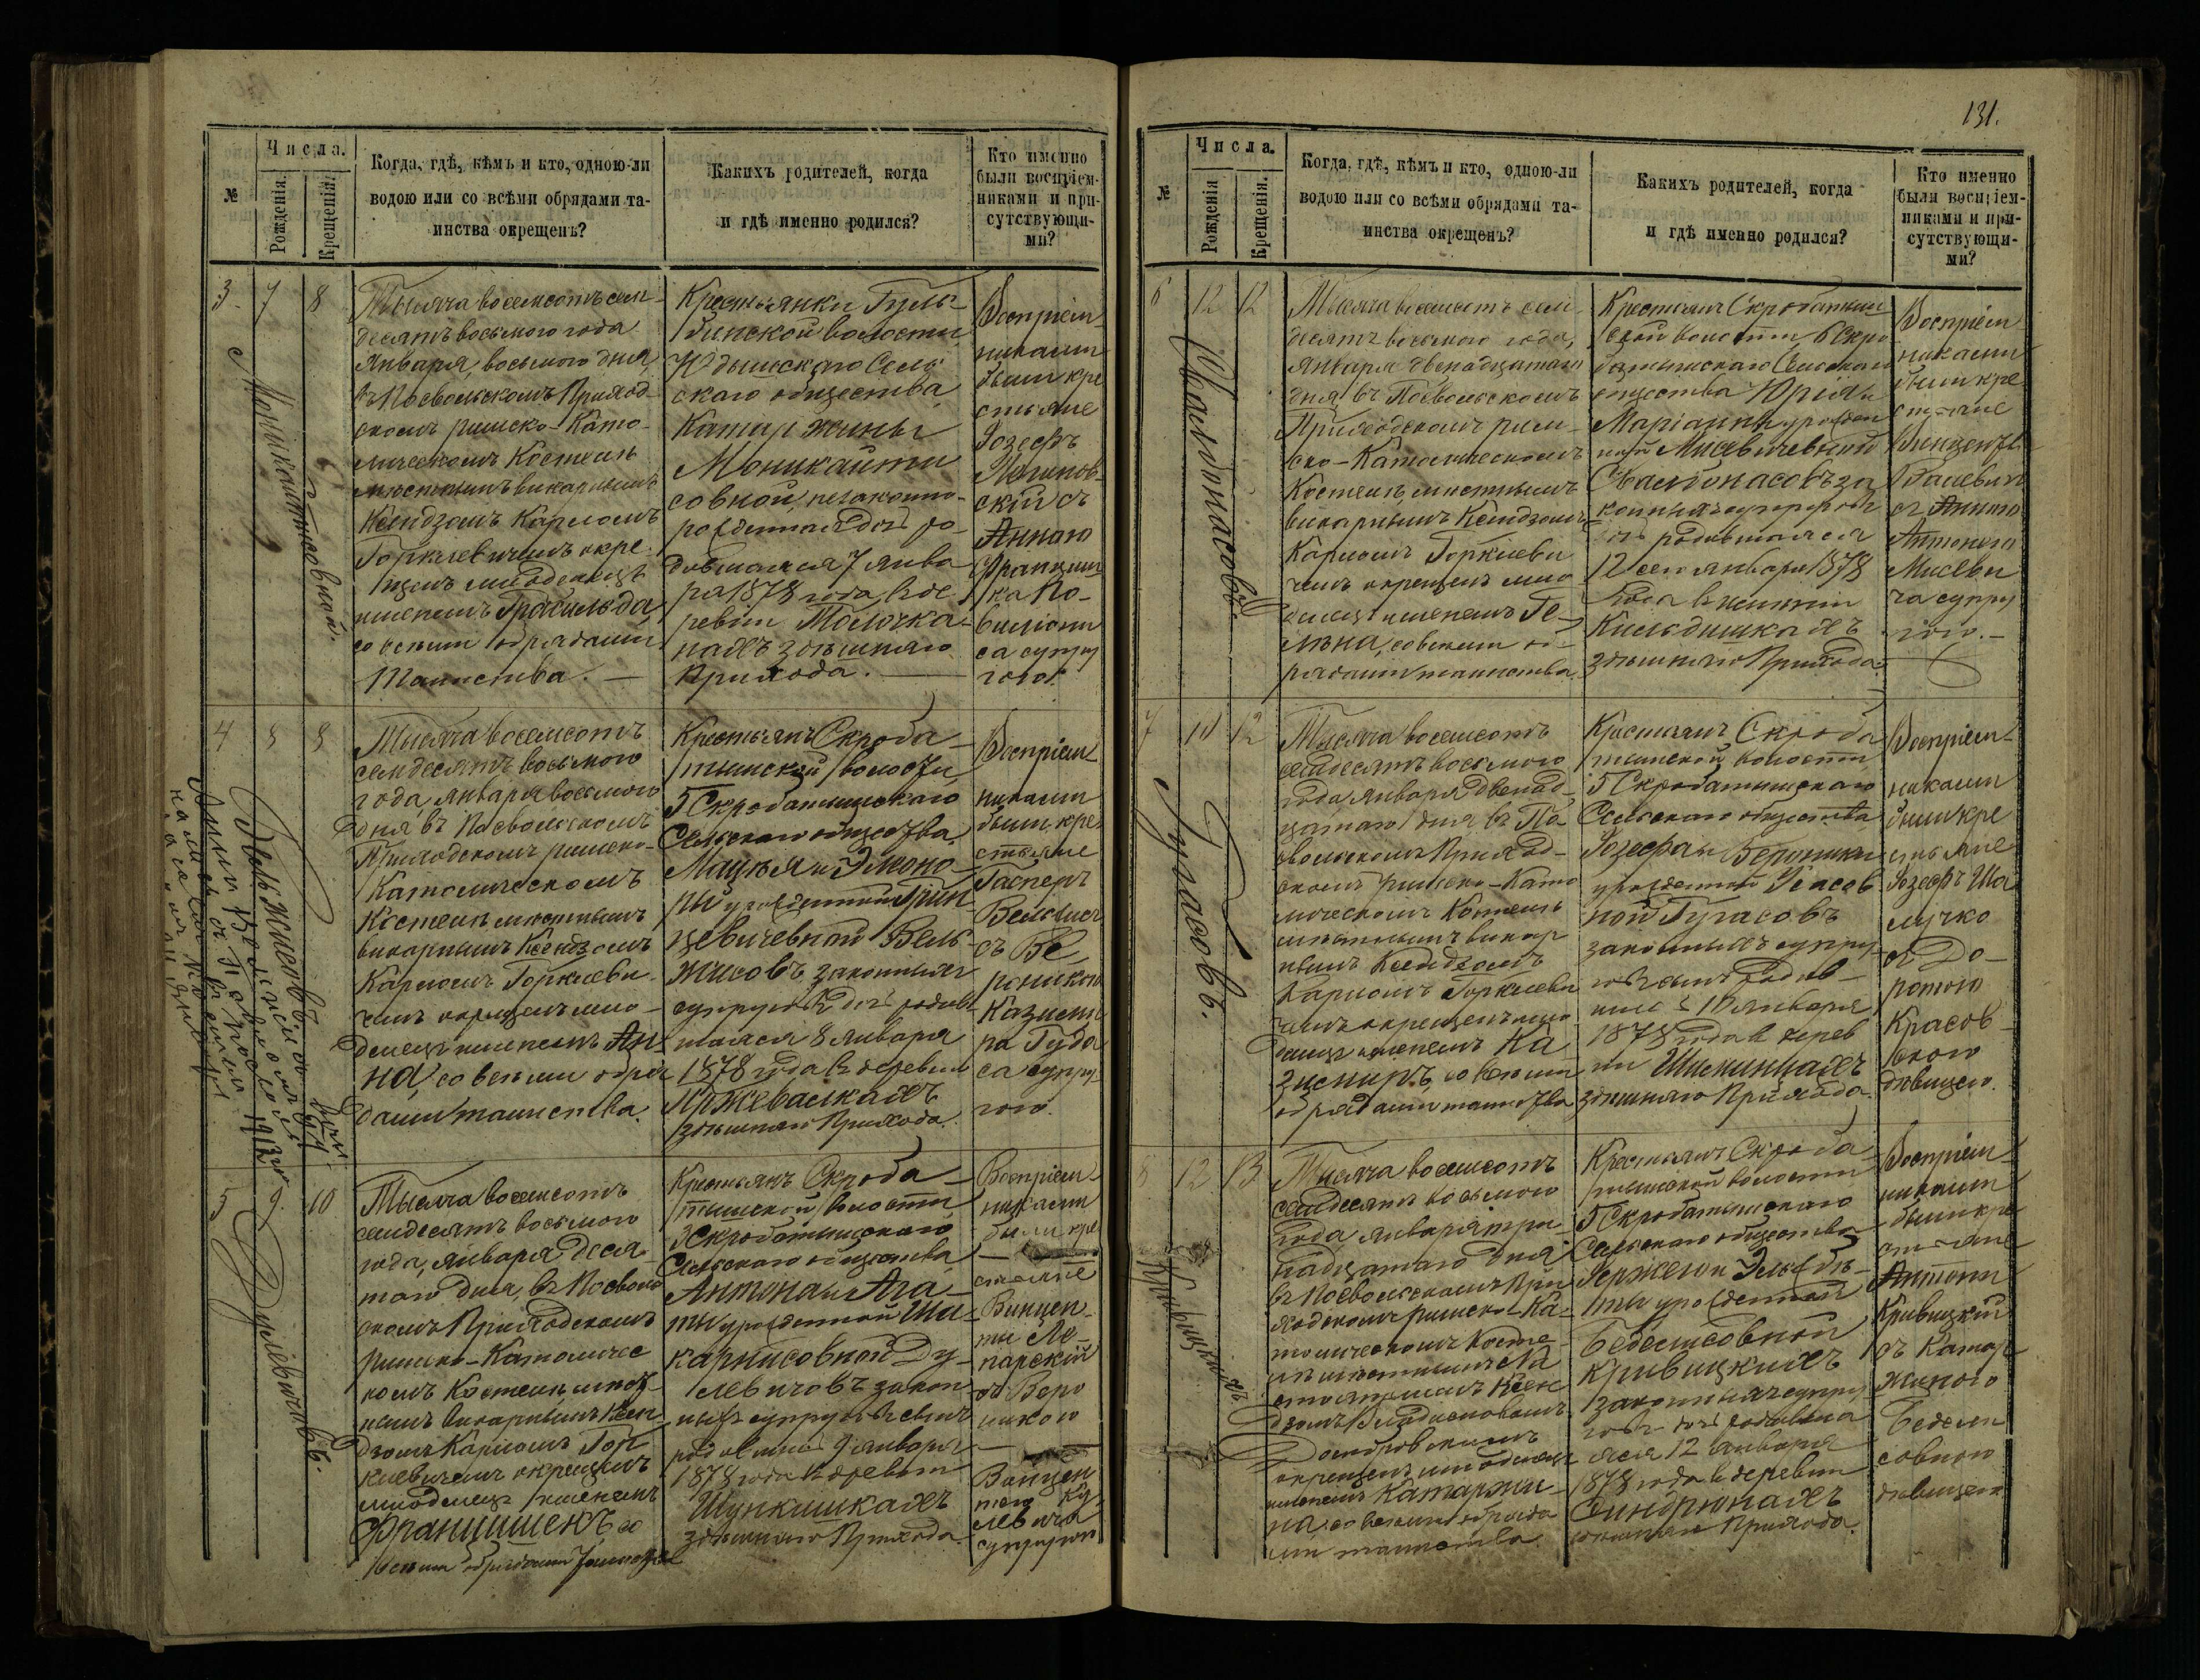 131.
№
Числа.
Рожденія.
Крещенія.
Когда, гдѣ, кѣмъ и кто, одною-ли
водою или со всѣми обрядами та-
инства окрещенъ?
Какихъ родителей, когда
и гдѣ именно родился?
Кто именно
были воспріем-
никами и при-
сутствующи-
ми?
3.
7
8
Тысяча восемсотъ сем-
десятъ восьмого года
Января, восьмого дня,
въ Посвольскомъ Приход-
скомъ римско-Като-
лическомъ Костелѣ
мѣстнымъ викарнымъ
Ксендзомъ Карломъ
Горкневичемъ окре-
щенъ младенецъ
именемъ
со всѣми обрядами
Таинства.
Крестьянки Гуль-
бинской волости
Сель-
скаго общества
Катаржины
Моникайти
совной, незаконно-
рожденная дочь ро-
дившаяся 7 янва-
ря 1878 года, в де-
ревни Толочка-
нахъ здѣшняго
Прихода.
Воспріем-
никами
были кре
стьяне
Іозефъ
съ
Анною
Францишка
са супру
гою.
4
8
8
Тысяча восемсотъ
семдесятъ восьмого
года, января восьмого
дня, въ Посвольскомъ
Приходскомъ римско-
Католическомъ
Костелѣ мѣстнымъ
викарнымъ Ксендзомъ
Карломъ Горкневи-
чемъ окрещенъ мла-
денецъ именемъ Ан-
на, со всѣми обря-
дами таинства.
Крестьянъ Скроба-
тишской волости
5 Скробатишскаго
Сельскаго общества,
Мацѣя и
ны урожденной Грин-
цевичевной Вель-
жисовъ законныхъ
супруговъ дочь родив-
шаяся 8 января
1878 года в деревни
Кржевалкахъ
здѣшняго Прихода.
Воспріем-
никами
были кре-
стьяне
Гасперъ
съ Ве
роникою
Казиміра
Гуда
са супру-
гою.
Вельжисовъ.
5
9.
10
Тысяча восемсотъ
семдесятъ восьмого
года, января деся-
таго дня, въ Посволь
скомъ Приходскомъ
римско-Католичес
комъ Костелѣ мѣст-
нымъ викарнымъ Ксен-
дзомъ Карломъ Гор
кневичемъ окрещенъ
младенецъ именемъ
Францишекъ со
всѣми обрядами таинства
Крестьянъ Скроба-
тишской волости
3 Скробатишскаго
Сельскаго общества
Антона и Ага-
ты урожденной Ша-
карнисовной Ду-
левичовъ закон-
ныхъ супруговъ сынъ
родившійся 9 января
1878 года в деревни
Шункишкахъ
здѣшняго Прихода.
Воспріем-
никами
были кре
стьяне
Винцен-
ти Ле-
парскій
съ Веро
никою
супругою
Дулевичовъ.
№
Числа.
Рожденія
Крещенія.
Когда, гдѣ, кѣмъ и кто, одною-ли
водою или со всѣми обрядами та-
инства окрещенъ?
Какихъ родителей, когда
и гдѣ именно родился?
Кто именно
были воспріем-
никами и при-
сутствующи-
ми?
6
12
12
Тысяча восемсотъ сем-
десятъ восьмого года,
января двенадцатаго
дня въ Посвольскомъ
Приходскомъ рим-
ско-Католическомъ
Костелѣ мѣстнымъ
викарнымъ Ксендзомъ
Карломъ Горкневи
чемъ окрещенъ мла
денецъ именемъ Ге-
лѣна, со всѣми об-
рядами таинства.
Крестьянъ Скробатиш
ской волости, 6 Скро
батишскаго Сельскаго
общества Юрія и
Маріанны урожден
ной Мисевичевной
Свалюнасовъ за
конныхъ супруговъ
дочь родившаяся
12 сего января 1878
года в имѣніи
Кильдишкахъ
здѣшняго Прихода.
Воспріем
никами
были кре-
стьяне
Винцентъ
съ Анною
Антонего
Мисеви
ча супру
гою.
Свалюнасовъ.
7
10
12
Тысяча восемсотъ
семдесятъ восьмого
года января двенад-
цатаго дня въ По-
свольскомъ Приход-
скомъ римско-Като
лическомъ Костелѣ
мѣстнымъ викар
нымъ Ксендзомъ
Карломъ Горкневи
чемъ окрещенъ мла
денецъ именемъ Ка
зимиръ, со всѣми
обрядами таинства
Крестьянъ Скроба
тишской волости
5 Скробатишскаго
Сельскаго общества
Іозефа и Вероники
урожденной
ной Гугасовъ
законныхъ супру-
говъ сынъ родив-
шійся 10 января
1878 года в дерев
ни
здѣшняго Прихода.
Воспріем-
никами
были кре
стьяне
Іозефъ Ша
лучко
съ До-
ротою
Красов-
ского
дѣвицею.
Гугасовъ.
8
12
13
Тысяча восемсотъ
семдесятъ восьмого
года января три-
надцатаго дня
въ Посвольскомъ При
ходскомъ римско-Ка-
толическомъ Косте-
лѣ мѣстнымъ На
стоятелемъ Ксен
дзомъ
Домбровскимъ
окрещенъ младенецъ
именемъ Катаржи-
на, со всѣми обряда
ми таинства.
Крестьянъ Скроба
тишской волости
5 Скробатишскаго
Сельскаго общества
Ержего и Эльжбѣ-
ты урожденной
Беделисовной
Кривицкихъ
законныхъ супру
говъ дочь родивша
яся 12 января
1878 года в деревни
Гиндрюнахъ
здѣшняго Прихода.
Воспріем-
никами
были кре
стьяне
Антони
Кривицкій
съ Катар
жиною
Бедели
совною
дѣвицею
Кривицкихъ